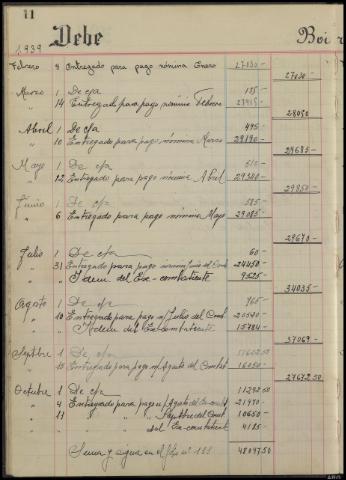 11
1939 Debe Boi
Febrero 8 Entregado para pago nómina Enero 27030-
27030-
Marzo 1 De c/a 135-
" 14 Entregado para pago nómina Febrero 27915-
28050
Abril 1 De c/a 495-
" 10 Entregado para pago nómina Marzo 29190-
29685-
Mayo 1 De c/a 510-
" 12 Entregado para pago nómina Abril 29340-
29850-
Junio 1 De c/a 585-
" 6 Entregado para pago nómina Mayo 29085-
29670-
Julio 1 De c/a 60-
" 31 Entregado para pago nomina Junio del Comb 24450-
" " Idem del Ex-combatiente 9525-
34035-
Agosto 1 De c/a 765-
" 10 Entregado para pago n/ Julio del Comb 20540-
" " Idem del Ex-combatiente 15784-
37069-
Septbre 1 De c/a 50
" 15 Entregado para pago n/ Agosto del Combat 16050-
27672.50
Octubre 1 De c/a 11292.50
" 4 Entregado para pago n/ Agosto del Ex-comb 21970-
" 11 " " " Septbre del Comb 10650-
" del Ex-combatiente 4185-
" Suma y sigue en el folio nº 48097.50